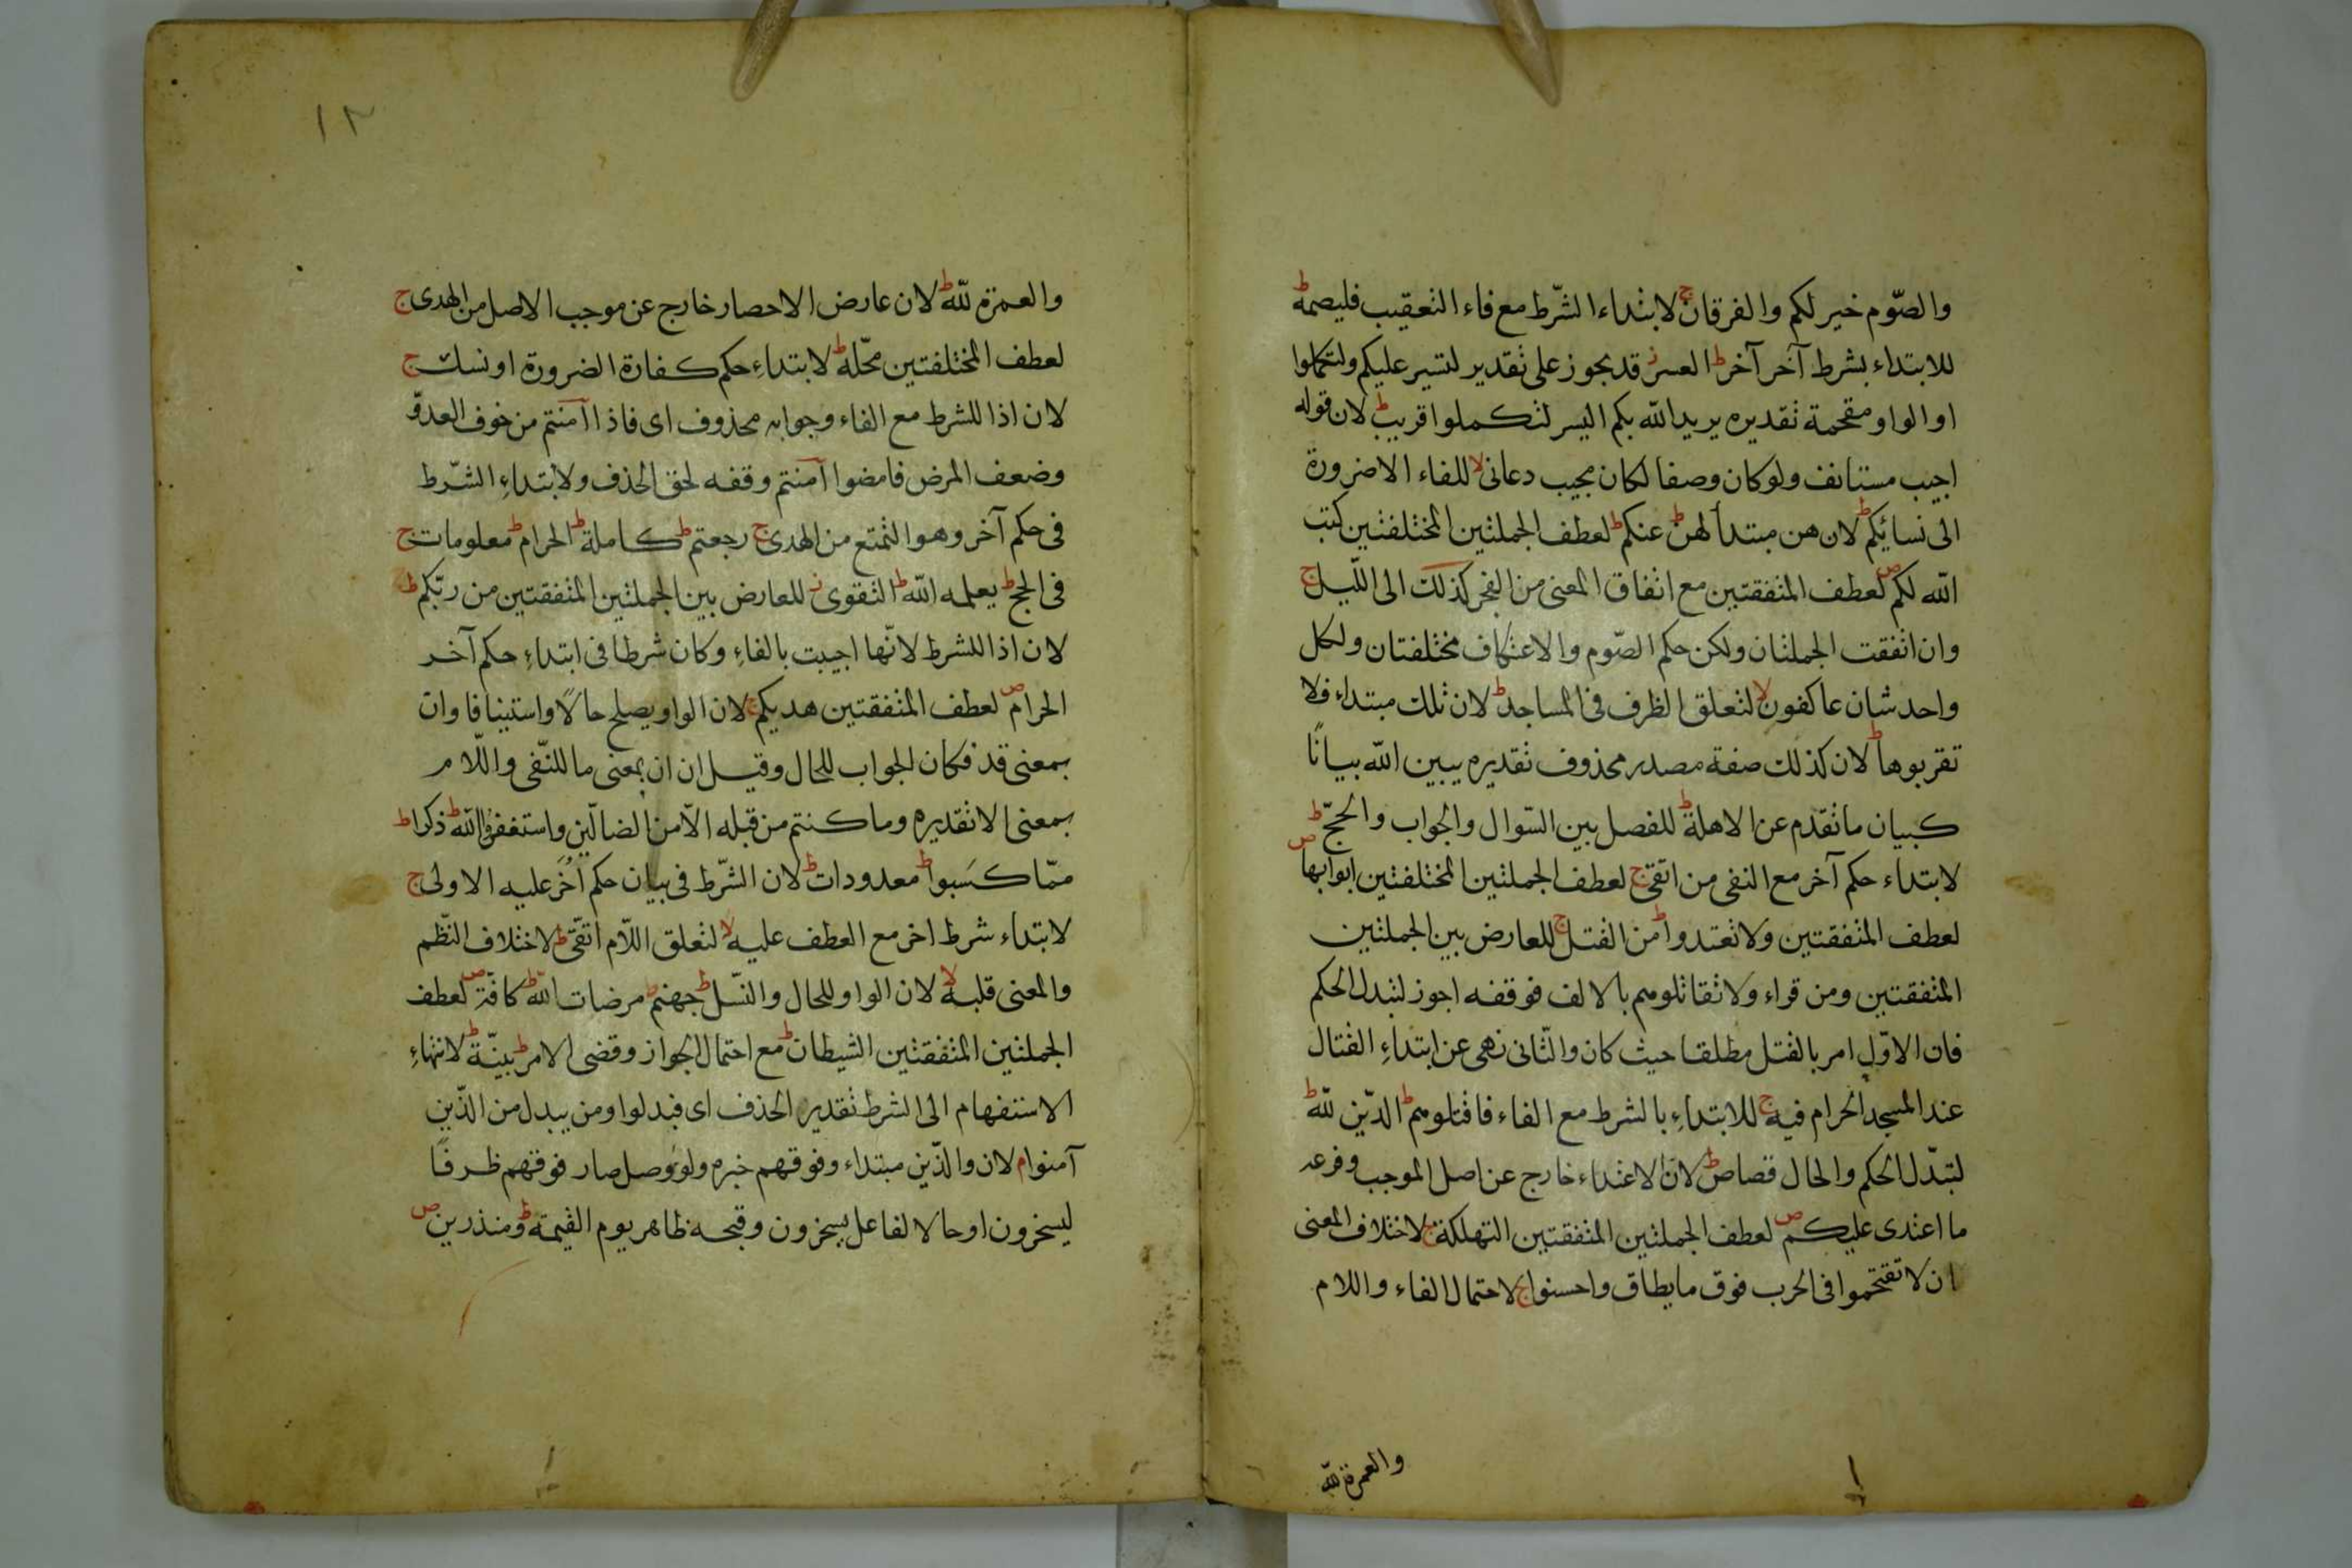 والصّوم خير لكم والفرقان ج لابتداء الشّرط مع فاء التعقيب فليصمه ط
للابتداء بشرط آخر آخر ط العسر ز قد يجوز على تقدير لتسير عليكم ولتكملوا
او الواو مقحمة تقديره يريد الله بكم اليسر لتكملوا قريب ط لان قوله
اجيب مستانف ولو كان وصفا لكان مجيب دعانى لا للفاء الا ضرورة
الى نسائكم ط لان هن مبتدأ لهن ط عنكم ط لعطف الجملتين المختلفتين كتب
الله لكم ص لعطف المتفقتين مع اتفاق المعنى من الفجر كذلك الى اللّيل ج
وان اتفقت الجملتان ولكن حكم الصّوم والاعتكاف مختلفتان ولكل
واحد شان عاكفون لا لتعلق الظرف فى المساجد ط لان تلك مبتداء فلا
تقربوها ط لان كذلك صفة مصدر محذوف تقديره يبين الله بيانًا
كبيان ما تقدم عن الاهلة ط للفصل بين السّوال والجواب والحجّ ط
لابتداء حكم آخر مع النفى من اتقى ج لعطف الجملتين المختلفتين ابوابها ص
لعطف المتفقتين ولا تعتدوا ط من القتل ج للعارض بين الجملتين
المتفقتين ومن قراء ولا تقاتلوهم بالالف فوقفه اجوز لتبدل الحكم
فان الاوّل امر بالقتل مطلقا حيث كان والثّانى نهى عن ابتداءِ القتال
عند المسجد الحرام فيه ج للابتداءِ بالشرط مع الفاء فاقتلوهم ط الدّين لله ط
لتبدّل الحكم والحال قصاص ط لان الاعتداء خارج عن اصل الموجب وفرعه
ما اعتدى عليكم ص لعطف الجملتين المتفقتين التهلكة ج لاختلاف المعنى
ان لا تقتحموا فى الحرب فوق ما يطاق واحسنوا ج لاحتمال الفاء واللام
والعمرة لله
١٢
والعمرة لله ط لان عارض الاحصار خارج عن موجب الاصل من الهدى ج
لعطف المختلفتين محّله ط لابتداءِ حكم كفارة الضرورة او نسك ج
لان اذا للشرط مع الفاء وجوابه محذوف اى فاذا آمنتم من خوف العدوّ
وضعف المرض فامضوا آمنتم وقفه لحق الحذف ولابتداءِ الشّرط
فى حكم آخر وهو التمتع من الهدى ج رجعتم ط كاملة ط الحرام ط معلومات ج
فى الحج ط يعلمه الله ط التقوى ز للعارض بين الجملتين المتفقتين من ربّكم ط
لان اذا للشرط لانّها اجيبت بالفاءِ وكان شرطا فى ابتداءِ حكم آخر
الحرام ص لعطف المتفقتين هديكم ج لان الواو يصلح حالًا واستينافا وان
بمعنى قد فكان الجواب للحال وقيل ان ان بمعنى ما للنّفى واللّام
بمعنى الا تقديره وما كنتم من قبله الّا من الضالّين واستغفروا الله ط ذكرا ط
ممّا كَسَبوا ط معدودات ط لان الشّرط فى بيان حكم آخر عليه الاولى ج
لابتداء شرط اخر مع العطف عليه لا لتعلق اللّام اتقى ط لاختلاف النّظم
والمعنى قلبه لا لان الواو للحال والنّسل ط جهنم ط مرضات الله ط كافّة ص لعطف
الجملتين المتفقتين الشيطان ط مع احتمال الجواز وقضى الامر ط بيّنة ط لانتهاءِ
الاستفهام الى الشرط تقدير الحذف اى فبدلوا ومن يبدل من الّذين
آمنوا م لان والّذين مبتداء وفوقهم خبره ولو وصل صار فوقهم ظرفًا
ليسخرون او حالا لفاعل يسخرون وقبحه ظاهر يوم القيمة ط ومنذرين ص